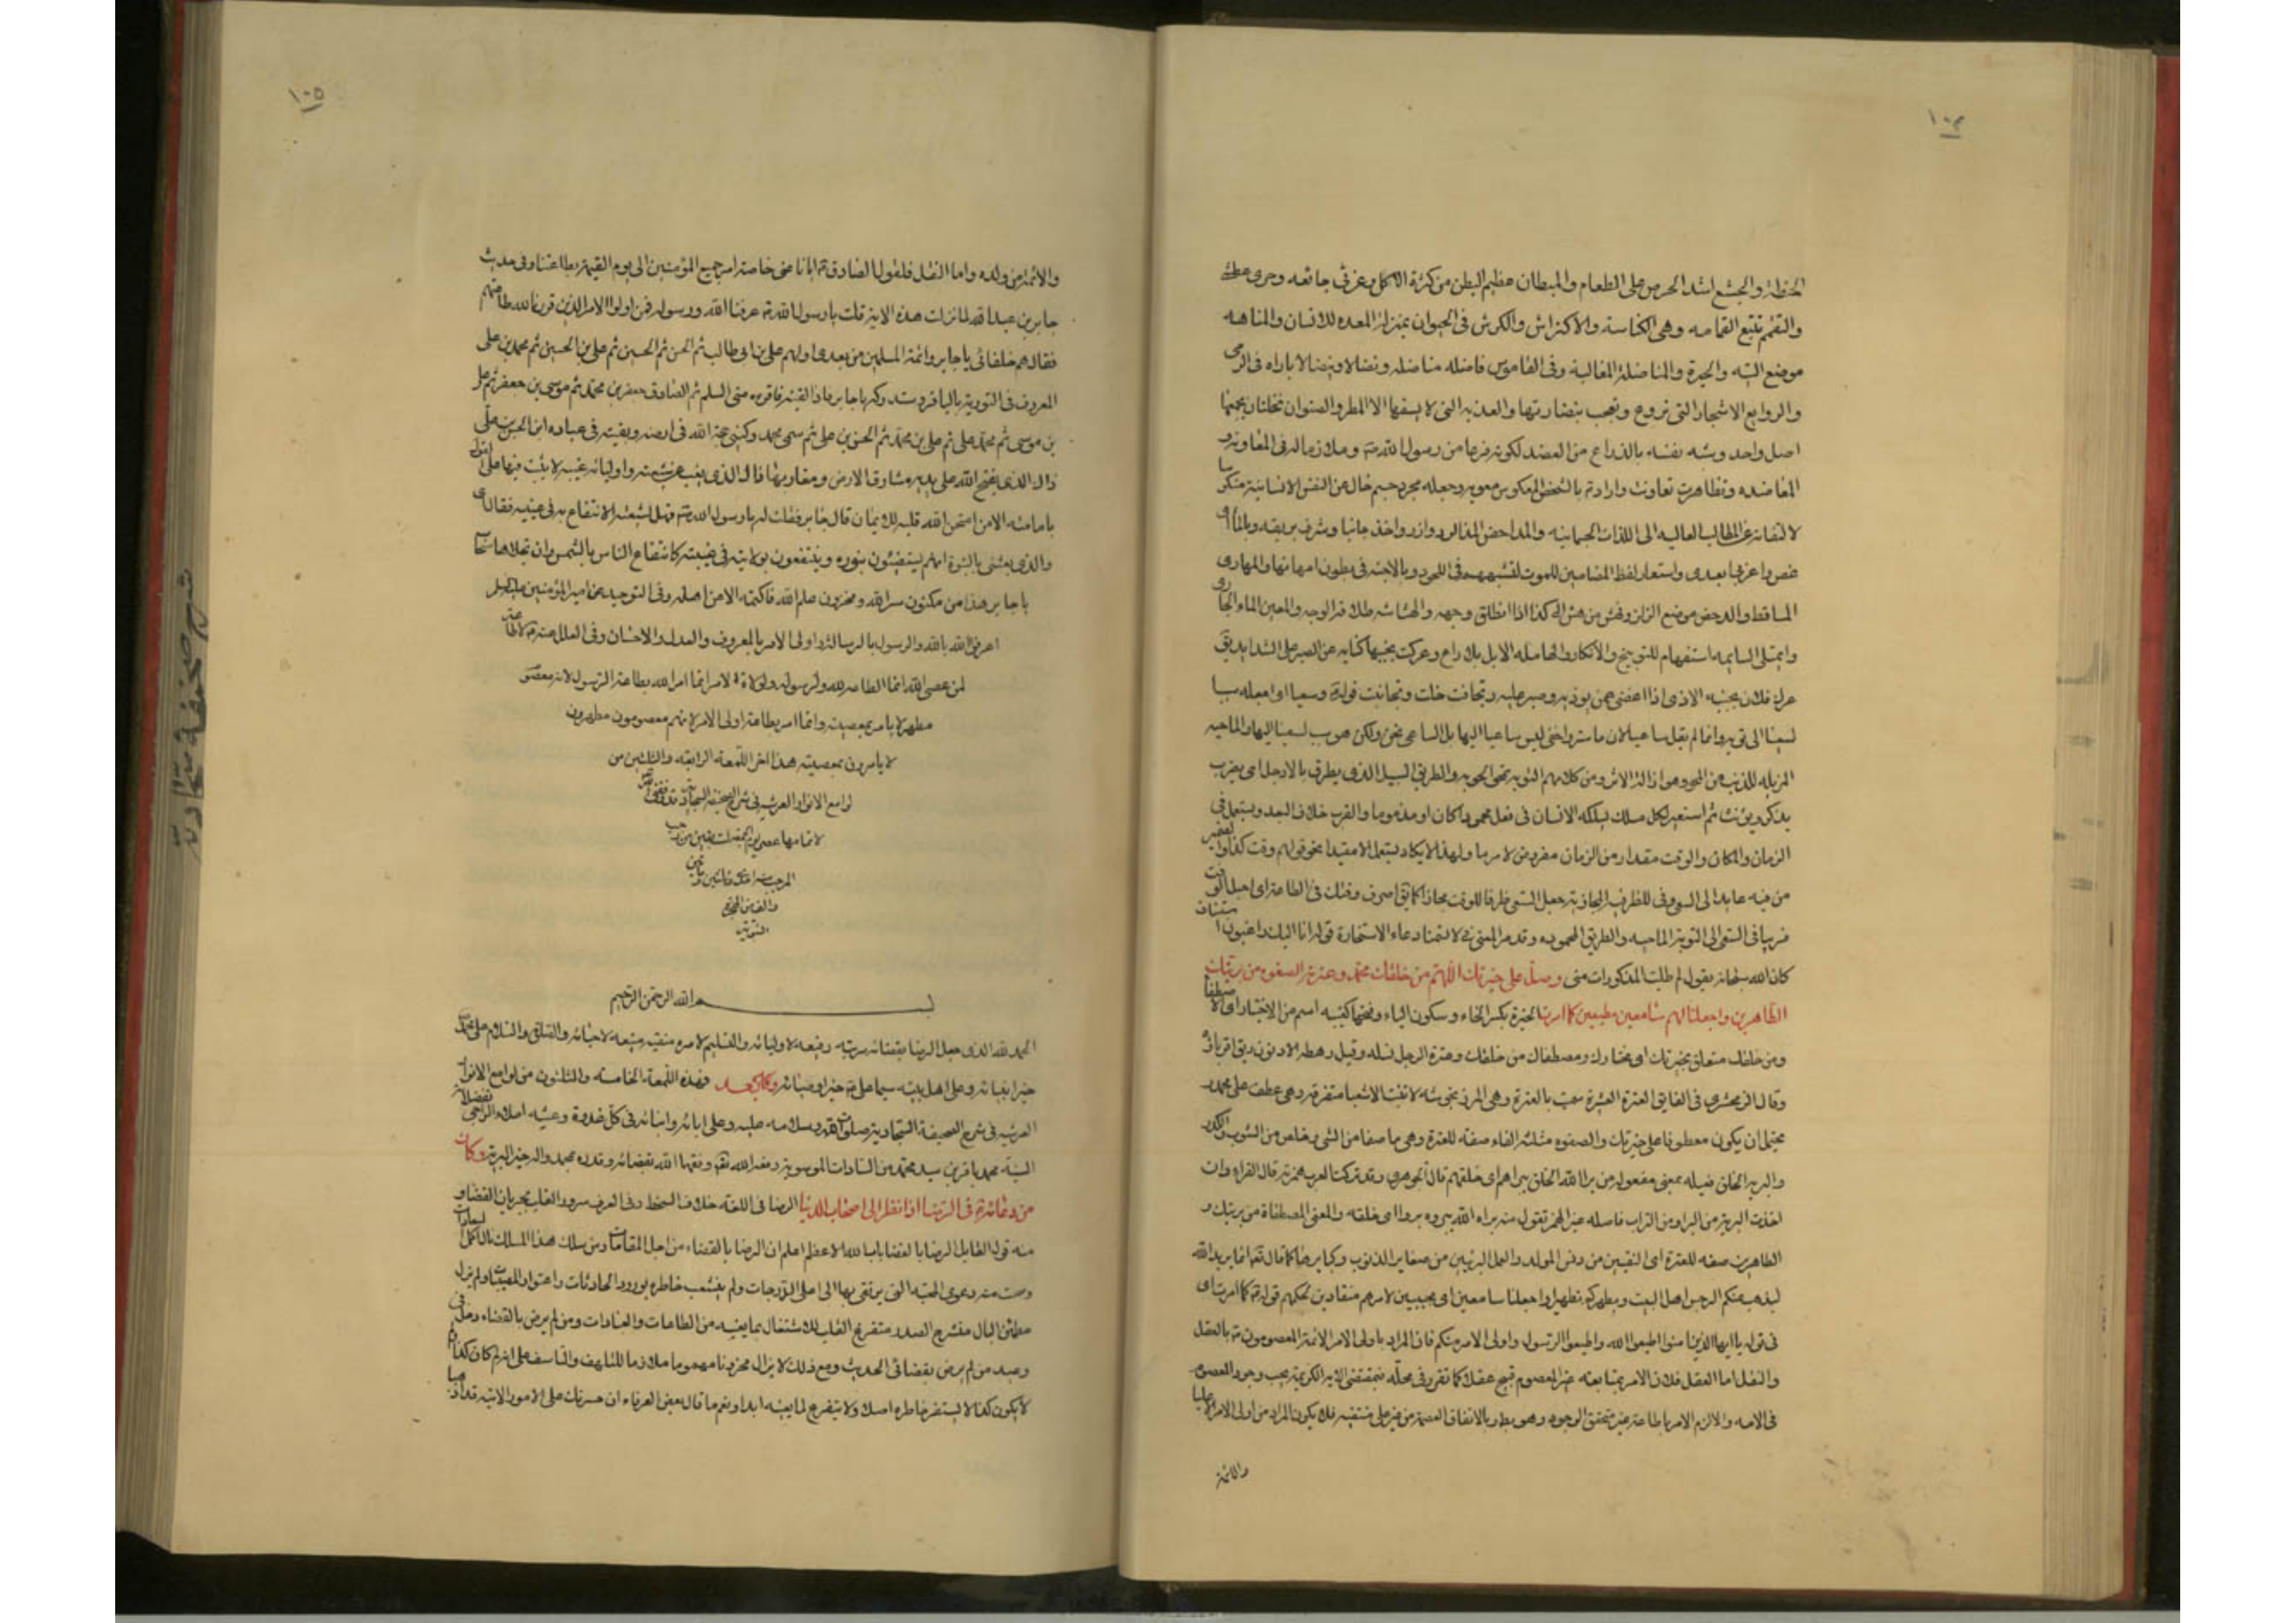 ١٠٤
الحنطة والجشع اشد الحرص على الطعام والمبطان عظيم البطن من كثرة الاكل وغرثى جائعه وحرى عطشى
والتقمم تتبع القمامه وهى الكناسة والاكتراش والكرش فى الحيوان بمنزلة المعده للانسان والمتاهه
موضع التيه والحيرة والمناضلة المغالبة وفى القاموس فاضله مناضله ونضالا ونيضالا باراه فى الرمى
والروابع الاشجار التى تروع وتعجب بنضارتها والعذيه التى لا يسقيها الا المطر والصنوان نخلتان يجمعها
اصل واحد وشبه نفسه بالذراع من العضد لكونه فرعا من رسول الله ص وملازما له فى المعاونه و
المعاضده وتظاهرت تعاونت وارادته بالشخص المعكوس معويه وجعله مجرد جسم خال عن النفس الانسانية منكر
لالتفاته عن المطالب العاليه الى اللذات الجسمانيه والمداحض المزالق وازور واخذ جانبا وشرق بريقه وبالماء
غص واعزبى ابعدى واستعار لفظ المضامين للموت لتشبههم فى اللحود وبالاجنه فى بطون امهاتها والمهاوى
المساقط والدحض موضع الزلق وهش من هش الى كذا اذا انطلق وجهه والهشاشه طلاقة الوجه والمعين الماء الجارى
وايمتلى السايمه استفهام للتوبيخ والانكار والهامله الابل بلا راع وعركت بجنبها كنايه عن الصبر على الشدايد يق
عرك فلان بجنبه الاذى اذا اغضى عمن يوذيه وصبر عليه وتجافت خلت وتجانبت قوله وسعيا اى اجعله سببا
لسعينا الى توبه وانما لم يقل ساعيا لان ما ستر واخفى ليس ساعيا اليها بل الساعى نحن ولكن هو سبب لسعينا اليها والماحيه
المزيله للذنب من المحو وهو ازالة الاثر ومن كلامهم التوبه تمحى الحوبه والطريق السبيل الذى يطرق بالارجل اى يضرب
يذكر ويؤنث ثم استعير لكل مسلك يسلكه الانسان فى فعل محمودا كان او مذموما والقرب خلاف البعد ويستعمل فى
الزمان والمكان والوقت مقدار من الزمان مفروض لامر ما ولهذا لا يكاد يستعمل الا مقيدا نحو قولهم وقت كذا والضمير
من فيه عايد الى السعى وفى للظرفية المجازية بجعل السعى ظرفا للوقت مجازا كما يق اصرف وقتك فى الطاعة اى اجعل الوقت
قريبا فى السعى الى التوبة الماحيه والطريق المحموده وقد مر المعنى فى لاتمتنا دعاء الاستخارة قوله انا اليك راغبون استيناف
كان الله سبحانه يقول لم طلبت المذكورات منى وصل على خيرتك اللهم من خلقك محمد وعترته الصفوه من بريتك
الطاهرين واجعلنا لهم سامعين مطيعين كما امرت الخيرة بكسر الخاء وسكون الياء وفتحها كعنبه اسم من الاختيار اى الاصطفاء
ومن خلقك متعلق بخيرتك اى مختارك ومصطفاك من خلقك وعترة الرجل نسله وقيل رهطه الادنون يق اقرباؤه
وقال الزمخشرى فى الفايق العترة العشيرة سميت بالعترة وهى المرزنجوشه لا تنبت الا شعبا متفرقه وهى عطف على محمد و
يحتمل ان يكون معطوفا على خيرتك والصفوه مثلثة الفاء صفه للعترة وهى ما صفا من الشئ وخلص من الشوب والكدر
والبريه الخلق فعيله بمعنى مفعوله من برا الله الخلق يبراهم اى خلقهم قال الجوهرى وقد تركت العرب همزته قال الفراء وان
اخذت البرية من البرا وهو التراب فاصله غير الهمز تقول منه براه الله يبروه بروا اى خلقه والمعنى المصطفاة من بريتك و
الطاهرين صفه للعترة اى النقيين من دنس المولد والعمل البريئين من صغاير الذنوب وكبايرها كما قال تعالى انما يريد الله
ليذهب عنكم الرجس اهل البيت ويطهركم تطهيرا واجعلنا سامعين اى مجيبين لامرهم منقادين لحكمهم قوله كما امرت اى
فى قوله يا ايها الذين امنوا اطيعوا الله واطيعوا الرسول واولى الامر منكم فان المراد باولى الامر الائمة المعصومون ع بالعقل
والنقل اما العقل فلان الامر بمتابعة غير المعصوم قبيح عقلا كما تقرر فى محله فمقتضى الايه الكريمة يجب وجود المعصوم
فى الامه والا لزم الامر باطاعة غير متحقق الوجود وهو بط وبالاتفاق العصمة من غير على منتفيه فلا يكون المراد من اولى الامر الا عليا
والائمة
١٠٥
والائمة من ولده واما النقل فلقول الصادق ع ايانا عنى خاصة امر جميع المؤمنين الى يوم القيمة بطاعتنا وفى حديث
جابر بن عبد الله لما نزلت هذه الاية قلت يا رسول الله عرفنا الله ورسوله فمن اولوا الامر الذين قرن الله طاعتهم
فقال هم خلفائى يا جابر وائمة المسلمين من بعدى اولهم على بن ابى طالب ثم الحسن ثم الحسين ثم على بن الحسين ثم محمد بن على
المعروف فى التورية بالباقر وستدركه يا جابر فاذا لقيته فاقره منى السلم ثم الصادق جعفر بن محمد ثم موسى بن جعفر ثم على
بن موسى ثم محمد بن على ثم على بن محمد ثم الحسن بن على ثم سمى محمد وكنيى حجة الله فى ارضه وبقيته فى عباده ابن الحسن بن على
ذاك الذى يفتح الله على يديه مشارق الارض ومغاربها ذاك الذى يغيب عن شيعته واوليائه غيبه لا يثبت فيها على القول
بامامته الا من امتحن الله قلبه للايمان قال جابر فقلت له يا رسول الله فهل لشيعته الانتفاع به فى غيبته فقال اى
والذى بعثنى بالنبوة انهم ليستضيئون بنوره وينتفعون بولايته فى غيبته كانتفاع الناس بالشمس وان تجلاها سحاب
يا جابر هذا من مكنون سر الله ومخزون علم الله فاكتمه الا من اهله وفى التوحيد عن امير المؤمنين عليه السلم
اعرفوا الله بالله والرسول بالرسالة واولى الامر بالمعروف والعدل والاحسان وفى العلل عنه ع لا طاعة
لمن عصى الله انما الطاعه لله ولرسوله ولولاة الامر انما امر الله بطاعة الرسول لانه معصوم
مطهر لا يامر بمعصيته وانما امر بطاعة اولى الامر لانهم معصومون مطهرون
لا يامرون بمعصيته هذا اخر اللمعة الرابعه والثلثين من
لوامع الانوار العرشيه فى شرح الصحيفة السجادية وقد وفق الله
لاتمامها عصر يوم الجمعة
المرجب سنه احدى وثمانين
والف من الهجرة
النبوية
بسم الله الرحمن الرحيم
الحمد لله الذى جعل الرضا بقضائه مرتبه رفيعه لاوليائه والتسليم لامره منقبه منيعه لاحبائه والصلوة والسلام على محمد
خير انبيائه وعلى اهل بيته سيما على ع خير اوصيائه وبعد فهذه اللمعة الخامسه والثلثون من لوامع الانوار
العرشيه فى شرح الصحيفة السجادية صلوات الله وسلامه عليه وعلى ابائه وابنائه فى كل غدوة وعشيه املاء الراجى فضل
السنيه محمد باقر بن سيد محمد من السادات الموسوية وفقه الله وقفهما الله بقضائه وقدره بمحمد واله خير البرية وكان
من دعائه ع فى الرضا اذا نظر الى اصحاب الدنيا الرضا فى اللغه خلاف السخط وفى العرف سرور القلب بجريان القضاء و
منه قول القايل الرضا بالقضا باب الله الاعظم اعلم ان الرضا بالقضاء من اجل المقامات ومن سلك هذا المسلك نال اكمل السعادات
وصحت منه دعوى المحبه التى يرتقى بها الى اعلى الدرجات ولم يتشعب خاطره بورود الحادثات واعتوار المصيبات ولم يزل
مطمئن البال منشرح الصدر متفرغ القلب للاشتغال بما يعنيه من الطاعات والعبادات ومن لم يرض بالقضاء دخل فى
وعيد من لم يرض بقضائى الحديث ومع ذلك لا يزال محزونا مهموما ملازما للتلهف والتاسف على انه لم كان كذا ولم
لا يكون كذا لا يستقر خاطره اصلا ولا يتفرغ لما يعنيه ابدا ونعم ما قال بعض العرفاء ان حسرتك على الامور الاتيه قد
شرح صحيفة سجاديه